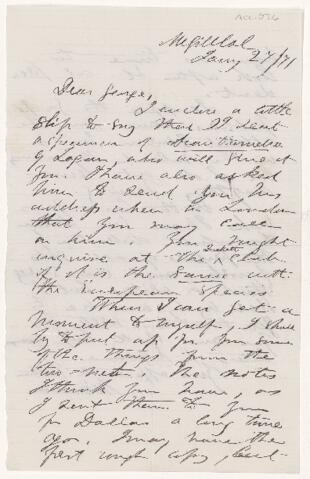 ACC. 526
McGill Col.
Jany 27/71
Dear George,
I enclose a little
slip to say that I sent
a specimen of
to Logan, who will give it
you. I have also asked
him to send you his
address when in London
that you may call
on him. You might
inquire at the Club
if it is the same with
the European species
When I can get a
moment to myself, I shall
try to put up for you some
of the things from the
. The notes
I think you have, as
I sent them to you
per Dallas a long time
ago. I may have the
first rough copy, but